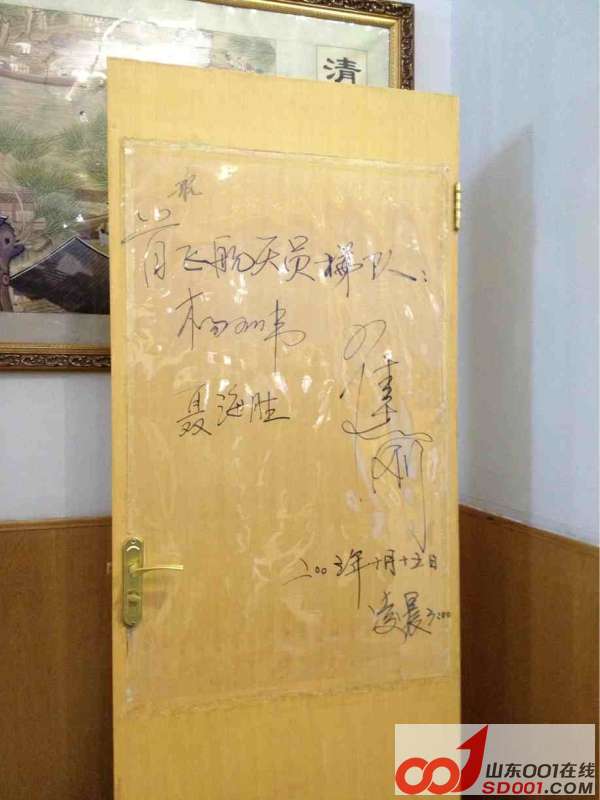 清
首飞航天员梯队：
杨利伟
聂海胜
二〇〇三年十月十五日
凌晨3:00
山东001在线
SD001.COM